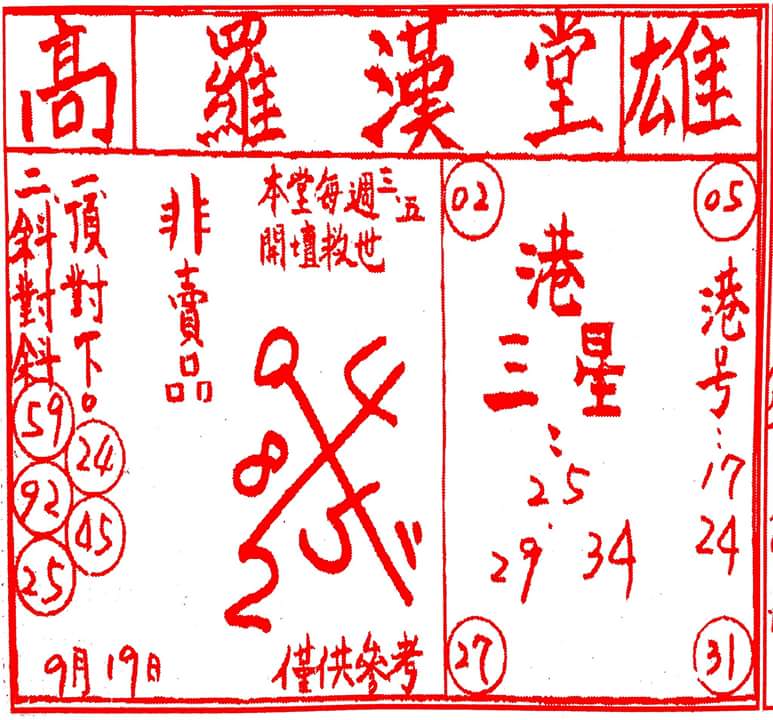 高 羅漢堂 雄
02
05
港
三星:
25
29 34
港号:
17
24
27
31
本堂每週三、五
開壇救世
非賣品
一頂對下。
24
45
二斜對斜
59
92
25
9月19日
僅供參考